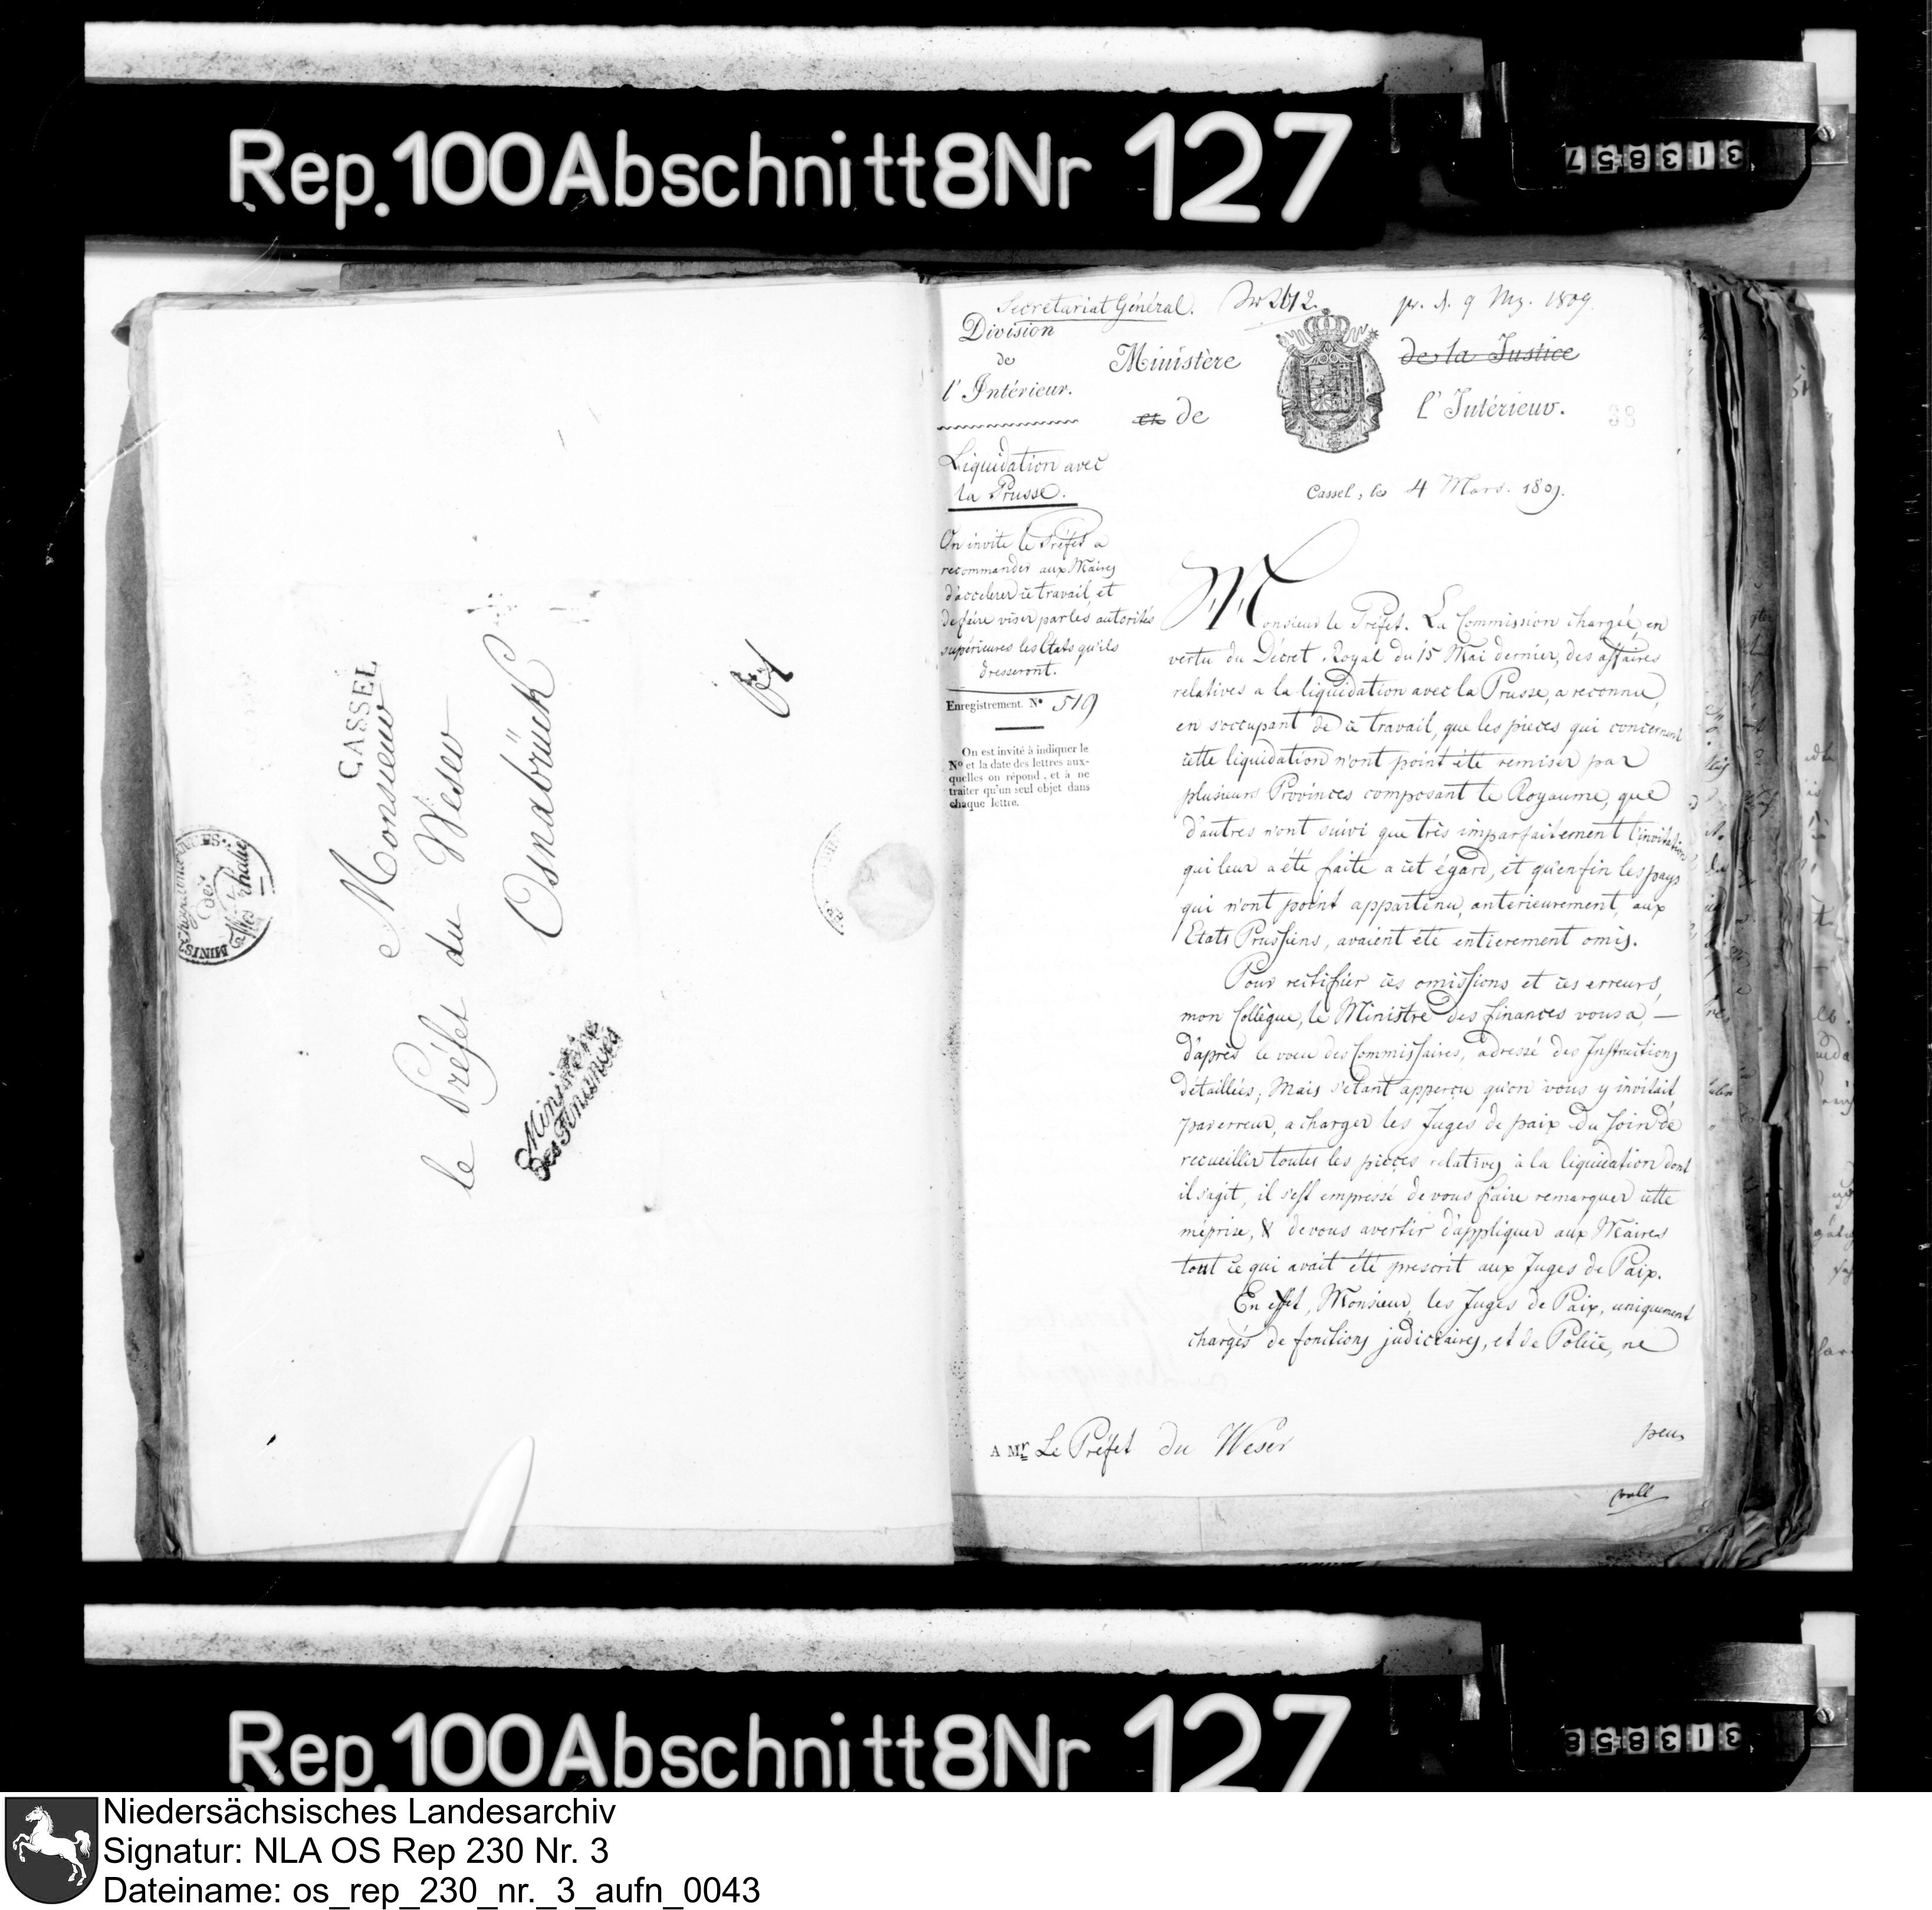 Rep. 100 Abschnitt 8 Nr 127
313857
CASSEL
Monsieur
le Préfet du Weser
Osnabrück
Ministère
des Finances
Secrétariat Général.
Division
de
l'Intérieur.
Ministère
de la Justice
et de
l'Intérieur.
38
pr. d. 9 Mz. 1809.
Cassel, le 4 Mars. 1809.
Liquidation avec
la Prusse.
On invite le Préfet a
recommander aux Maires
d'accelerer ce travail et
de faire viser par les autorités
supérieures les Etats qu'ils
dresseront.
Enregistrement. N° 519
On est invité à indiquer le
N° et la date des lettres aux-
quelles on répond, et à ne
traiter qu'un seul objet dans
chaque lettre.
Monsieur le Préfet. La Commission chargée, en
vertu du Décret Royal du 15 Mai dernier, des affaires
relatives a la liquidation avec la Prusse, a reconnu,
en s'occupant de ce travail, que les pieces qui concernent
cette liquidation n'ont point été remises par
plusieurs Provinces composant le Royaume, que
d'autres n'ont suivi que très imparfaitement l'invitation
qui leur a été faite a cet égard, et qu'enfin les pays
qui n'ont point appartenu, anterieurement, aux
Etats Prussiens, avaient été entierement omis.
Pour rectifier ces omissions et ces erreurs,
mon Collègue, le Ministre des finances vous a, —
d'après le voeu des Commissaires, adressé des Instructions
détaillées; Mais s'étant apperçu qu'on vous y invitait,
par erreur, a charger les Juges de paix du soin de
recueillir toutes les pièces relatives à la liquidation dont
il s'agit, il s'est empressé de vous faire remarquer cette
méprise, & de vous avertir d'appliquer aux Maires
tout ce qui avait été prescrit aux Juges de Paix.
En effet, Monsieur, les Juges de Paix, uniquement
chargés de fonctions judiciaires, et de Police, ne
A Mr Le Préfet du Weser
peuv
Rep. 100 Abschnitt 8 Nr 127
313858
Niedersächsisches Landesarchiv
Signatur: NLA OS Rep 230 Nr. 3
Dateiname: os_rep_230_nr._3_aufn_0043